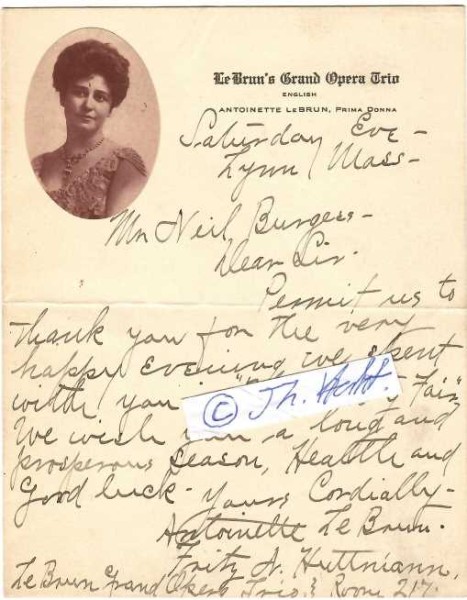 LeBrun's Grand Opera Trio
ENGLISH
ANTOINETTE LEBRUN, PRIMA DONNA
Saturday Eve-
Lynn, Mass-
Mr Neil Burgess-
Dear Sir.
Permit us to
thank you for the very
happy evening we spent
with you in Fair"
© Th.
We wish you a long and
prosperous season, Health and
Good luck- Yours Cordially-
Antoinette Le Brun.
Fritz N. Huttmann,
Le Brun Grand Opera Trio & Room 217.